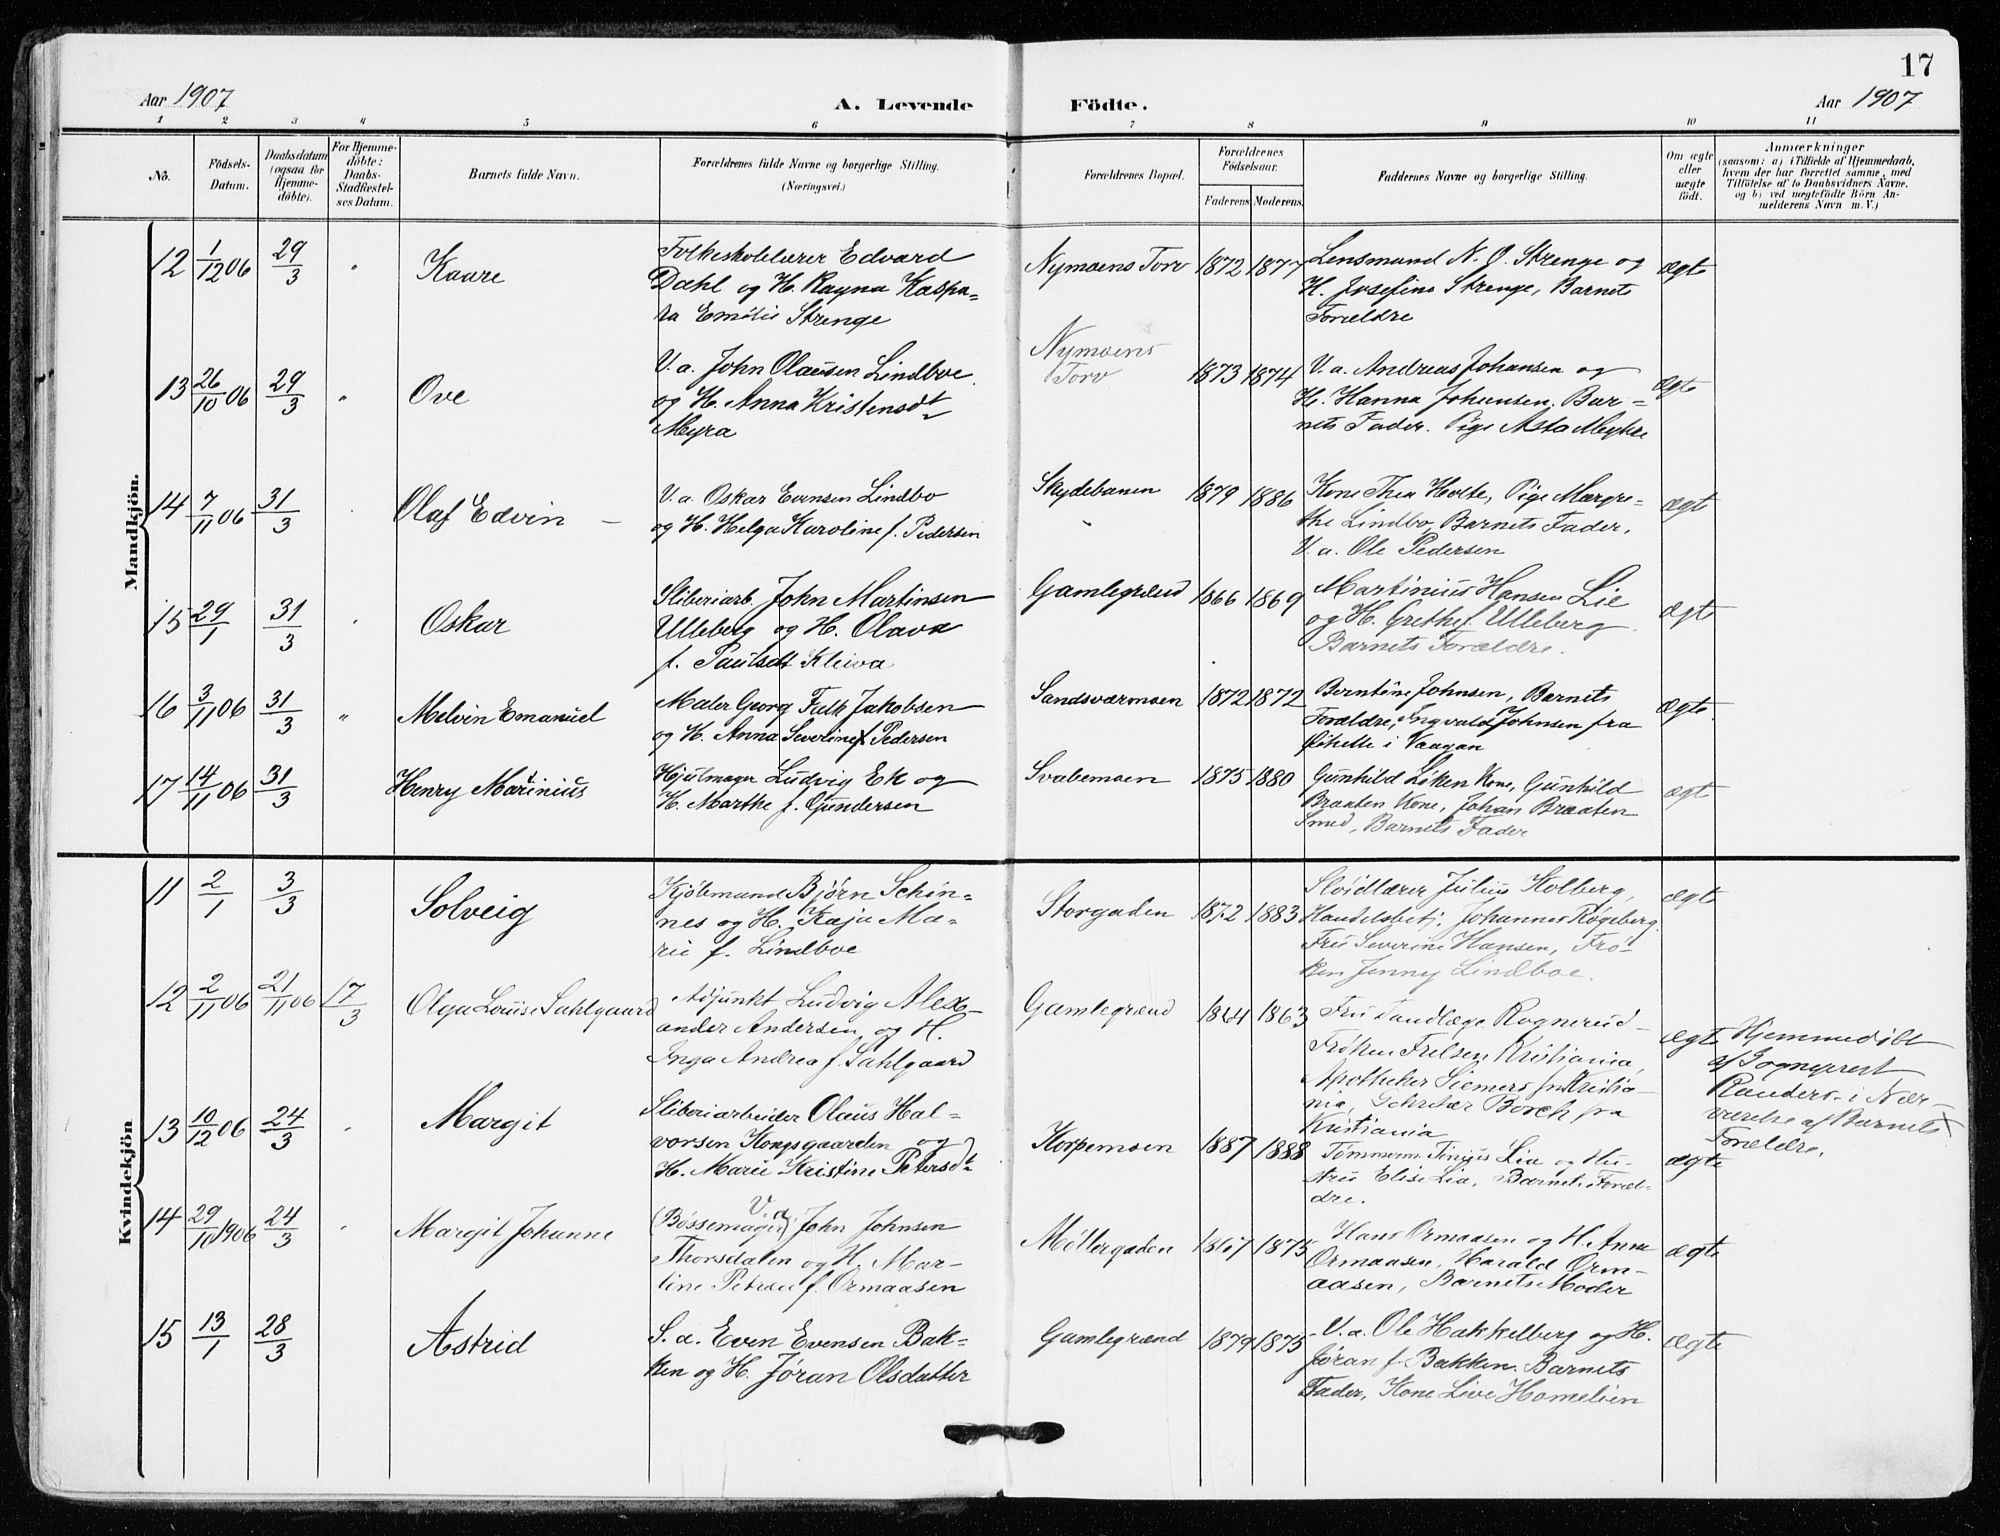 17
Aar 1907 A. Levende Födte. Aar 1907
1 2 3 4 5 6 7 8 9 10 11
No. Födsels-Datum. Daabsdatum (ogsaa for Hjemme-döbte). For Hjemme-döbte: Daabs-Stadfæstel-ses Datum. Barnets fulde Navn. Forældrenes fulde Navne og borgerlige Stilling. (Næringsvei.) Forældrenes Bopæl. Forældrenes Födselsaar. Faderens Moderens. Faddernes Navne og borgerlige Stilling. Om ægte eller uægte födt. Anmærkninger (saasom: a) i Tilfælde af Hjemmedaab, hvem der har forrettet samme, med Tilföielse af to Daabsvidners Navne, og b) ved uegtefödte Börn An-melderens Navn m. V.)
Mandkjön.
12 1/12 06 29/3 " Kaare
Folkeskolelærer Edvard
Dahl og H. Ragna Kaspa-
ra Emilie Strenge
Nymoens Torv 1872 1877
Lensmand N. O. Strenge og
H. Josefine Strenge, Barnets
Forældre
ægte
13 26/10 06 29/3 " Ove
V.a. John Olausen Lindboe
og H. Anna Kristensdt
Myra
Nymoens
Torv
1873 1874
V.a. Andreas Johansen og
H. Hanna Johansen. Bar-
nets Fader. Pige Asta
ægte
14 7/11 06 31/3 Olaf Edvin –
V.a. Oskar Evensen Lindbo
og H. Helga Karoline f. Pedersen
Skydebanen 1879 1886
Kone Thea Holte, Pige Margre-
the Lindbo, Barnets Fader,
V.a. Ole Pedersen
ægte
15 29/1 31/3 " Oskar
Sliberiarb. John Martinsen
Ulleberg og H. Olava
f. Paulsdt Kleiva
Gamlegrænd 1866 1869
Martinius Hansen Lie
og H. Grethe f. Ulleberg
Barnets Forældre.
ægte
16 3/11 06 31/3 " Melvin Emanuel
Maler Georg Falk Jakobsen
og H. Anna Severine f. Pedersen
Sandsværmoen 1872 1872
Berntine Johnsen, Barnets
Forældre, Ingvald Johnsen fra
i Vaagan
ægte.
17 14/11 06 31/3 Henry Marinius
Hjulmager Ludvig Ek og
H. Marthe f. Gundersen
Svabemoen 1875 1880
Gunhild Løken Kone, Gunhild
Braaten Kone, Johan Braaten
Smed, Barnets Fader
ægte
Kvindekjön
11 2/1 3/3 Solveig
Kjøbmand Bjørn Schin-
nes og H. Kaja Ma-
rie f. Lindboe
Storgaden 1872 1883
Sløidlærer Julius Kolberg,
Handelsbetj. Johannes Røgeberg,
Fru Severine Hansen, Frø-
ken Jenny Lindboe.
ægte
12 2/11 06 21/11 06 17/3 Olga Louise Sahlgaard
Adjunkt Ludvig Alex-
ander Andersen og H.
Inga Andrea f. Sahlgaard
Gamlegrænd 1864 1863
Fru Tandlæge Rognerud
Frøken Frelsen Kristiania,
Apotheker Siemers fra Kristia-
nia, Borch fra
Kristiania
ægte
Hjemmedøbt
af Sogneprest
Randers i Nær-
værelse af Barnets
Forældre.
13 10/12 06 24/3 " Margit
Sliberiarbeider Olaus Hal-
vorsen Kongsgaarden og
H. Marie Kristine Petersdt
Korpemoen 1887 1888
Tømmerm. Tinius Lia og Hu-
stru Elise Lia, Barnets Foræl-
dre.
ægte
14 29/10 1906 24/3 " Margit Johanne
V.a.
(Bøssemager) John Johnsen
Thorsdalen og H. Mar-
tine Petrea f. Ormaasen
Møllergaden 1867 1875
Hans Ormaasen og H. Anna
Ormaasen, Harald Orm-
aasen, Barnets Moder
ægte
15 13/1 28/3 Astrid
S.a. Even Evensen Bak-
ken og H. Jøran Olsdatter
Gamlegrænd 1879 1875
V.a. Ole Hakkelberg og H.
Jøran f. Bakken. Barnets
Fader, Kone Live Homelien
ægte